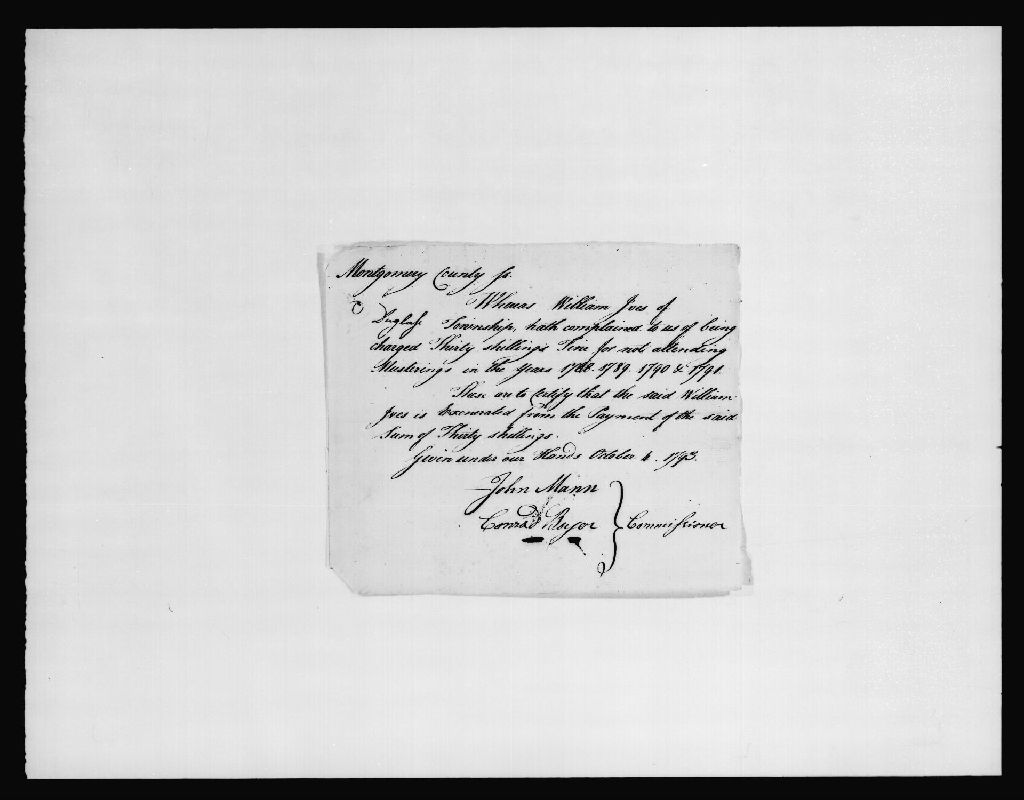 Montgomery County ss.
Whereas William Ives of
Duglass Township, hath complained to us of being
charged Thirty shillings Fine for not attending
Musterings in the Years 1788. 1789. 1790 & 1791.
These are to Certify that the said William
Ives is Exonerated from the Payment of the said
Sum of Thirty shillings.
Given under our Hands October 4. 1793.
John Mann
Conrad Boyer } Commissioner